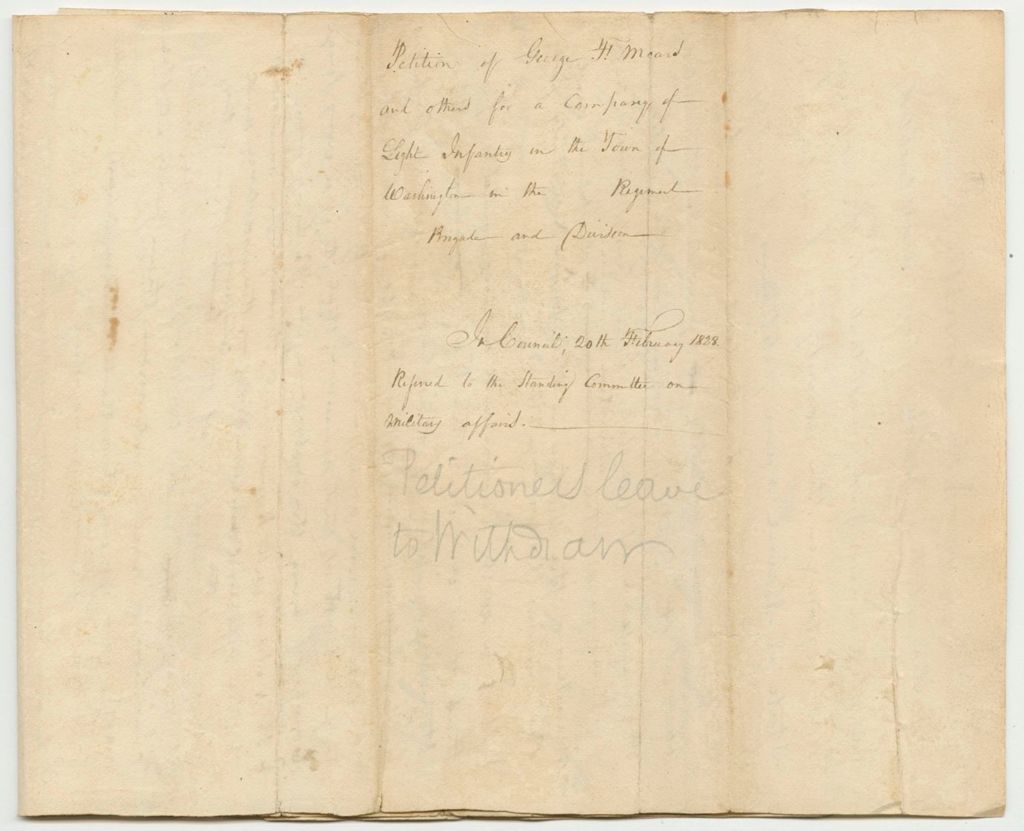 Petition of George H. Moard
and others for a Company of
Light Infantry in the Town of
Washington in the Regiment
Brigade and Division
In Council, 20th February 1828.
Referred to the Standing Committee on
Military affairs.
Petitioners leave
to Withdraw